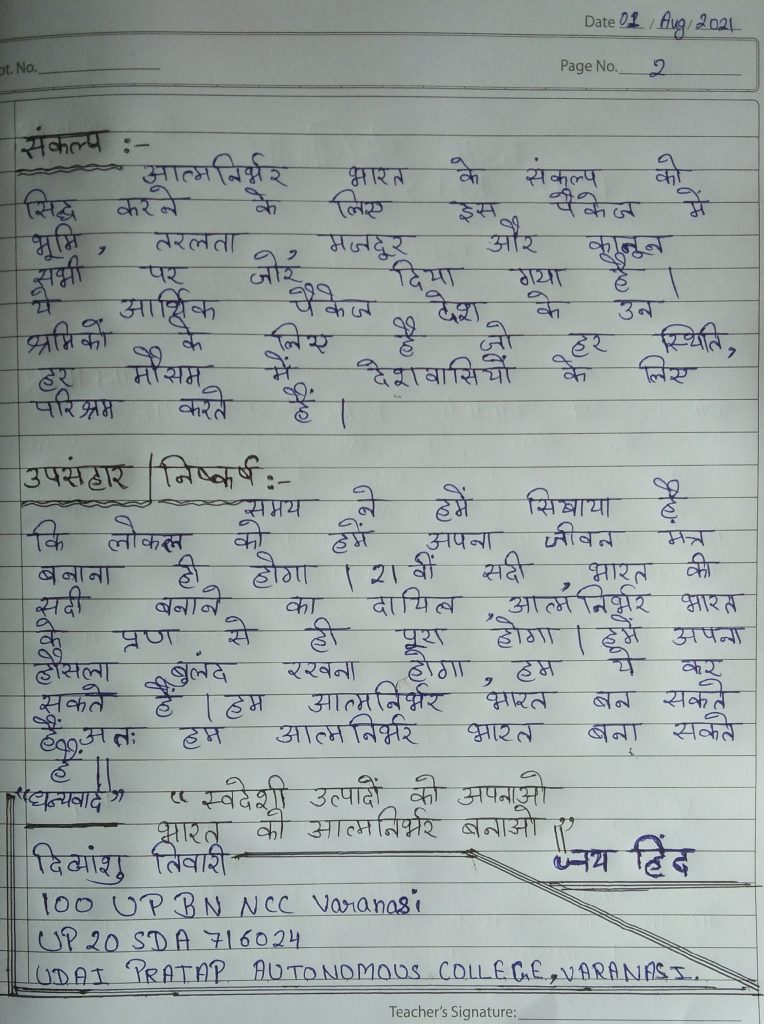 Date 01 / Aug / 2021
pt. No.
Page No. 2
संकल्प :-
आत्मनिर्भर भारत के संकल्प को
सिद्ध करने के लिए इस पैकेज में
भूमि, तरलता, मजदूर और कानून
सभी पर जोर दिया गया है |
ये आर्थिक पैकेज देश के उन
श्रमिकों के लिए है जो हर स्थिति,
हर मौसम में देशवासियों के लिए
परिश्रम करते हैं |
उपसंहार / निष्कर्ष :-
समय ने हमें सिखाया है
कि लोकल को हमें अपना जीवन मंत्र
बनाना ही होगा | 21 वीं सदी, भारत की
सदी बनाने का दायित्व, आत्मनिर्भर भारत
के प्रण से ही पूरा होगा | हमें अपना
हौसला बुलंद रखना होगा, हम ये कर
सकते हैं | हम आत्मनिर्भर भारत बन सकते
हैं, अतः हम आत्मनिर्भर भारत बना सकते
हैं ||
"धन्यवाद" " स्वदेशी उत्पादों को अपनाओ
भारत को आत्मनिर्भर बनाओ || "
दिव्यांशु तिवारी जय हिंद
100 UP BN NCC Varanasi
UP 20 SDA 716024
UDAI PRATAP AUTONOMOUS COLLEGE, VARANASI.
Teacher's Signature: